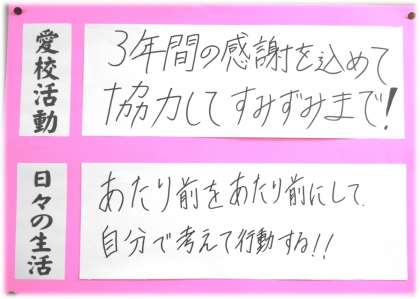 愛校活動
3年間の感謝を込めて
協力してすみずみまで!
日々の生活
あたり前をあたり前にして、
自分で考えて行動する!!